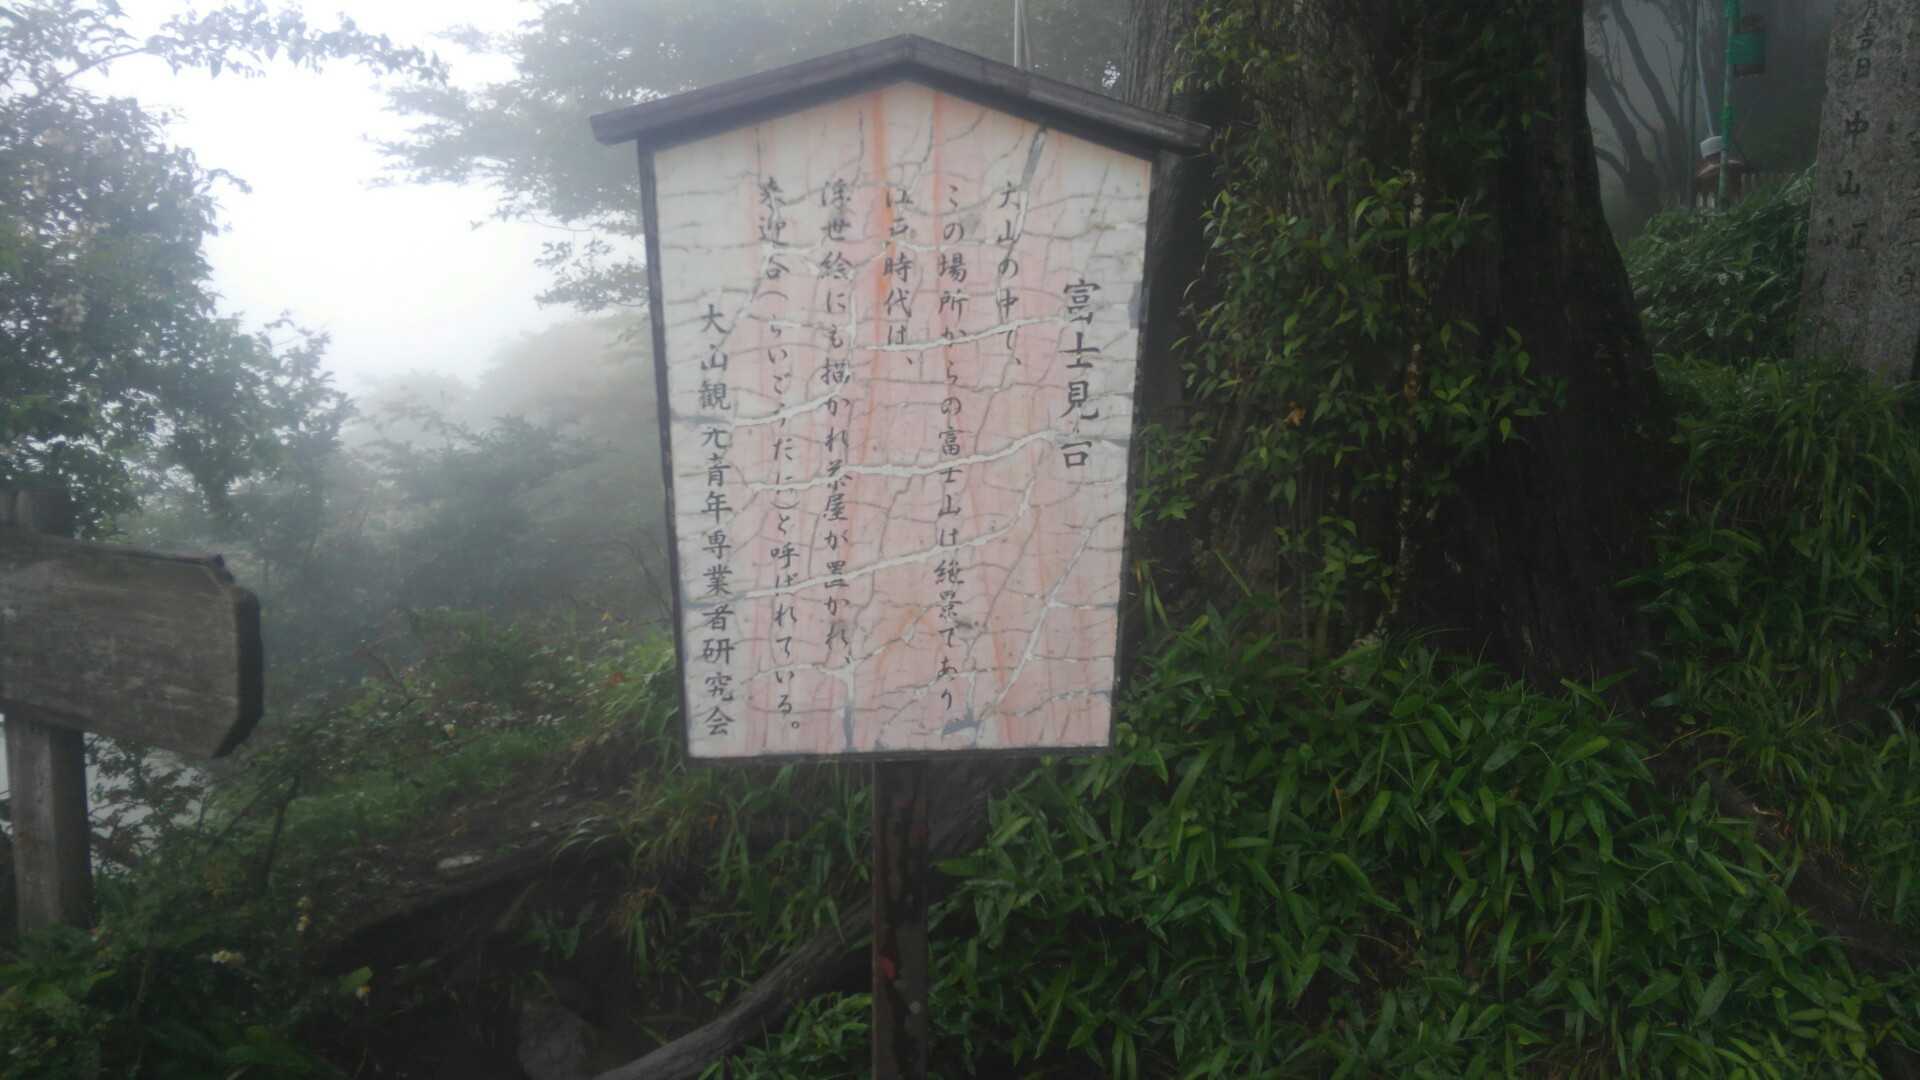 富士見台
大山の中で、
この場所からの富士山は絶景であり
江戸時代は、
浮世絵にも描かれ茶屋が置かれ、
来迎谷(らいごうだに)と呼ばれている。
大山観光青年専業者研究会
中山正